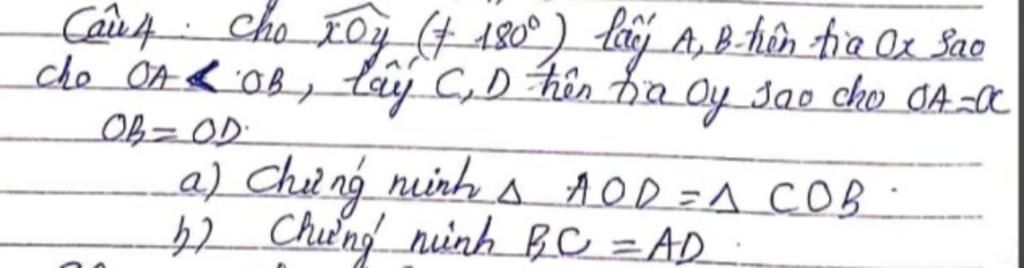 Câu 4 : Cho xOy (≠ 180°) lấy A, B trên tia Ox sao
cho OA < OB, lấy C, D trên tia Oy sao cho OA = OC
OB = OD.
a) Chứng minh Δ AOD = Δ COB.
b) Chứng minh BC = AD.